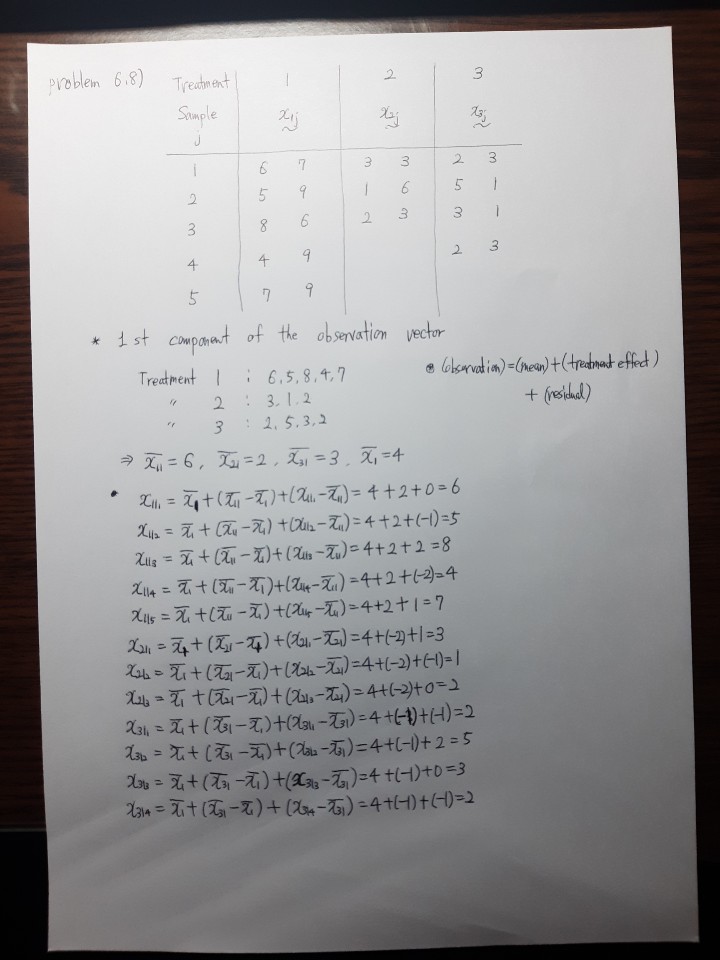 problem 6.8) Treatment 1 2 3
Sample x̰1j x̰2j x̰3j
j
1 6 7 3 3 2 3
2 5 9 1 6 5 1
3 8 6 2 3 3 1
4 4 9 2 3
5 7 9
* 1st component of the observation vector
Treatment 1 : 6, 5, 8, 4, 7
〃 2 : 3, 1, 2
〃 3 : 2, 5, 3, 2
⊛ (observation)=(mean)+(treatment effect)
+ (residual)
⇒ x̄11 = 6, x̄21 = 2, x̄31 = 3, x̄1 = 4
• x111 = x̄1 + (x̄11 - x̄1) + (x111 - x̄11) = 4 + 2 + 0 = 6
x112 = x̄1 + (x̄11 - x̄1) + (x112 - x̄11) = 4 + 2 + (-1) = 5
x113 = x̄1 + (x̄11 - x̄1) + (x113 - x̄11) = 4 + 2 + 2 = 8
x114 = x̄1 + (x̄11 - x̄1) + (x114 - x̄11) = 4 + 2 + (-2) = 4
x115 = x̄1 + (x̄11 - x̄1) + (x115 - x̄11) = 4 + 2 + 1 = 7
x211 = x̄1 + (x̄21 - x̄1) + (x211 - x̄21) = 4 + (-2) + 1 = 3
x212 = x̄1 + (x̄21 - x̄1) + (x212 - x̄21) = 4 + (-2) + (-1) = 1
x213 = x̄1 + (x̄21 - x̄1) + (x213 - x̄21) = 4 + (-2) + 0 = 2
x311 = x̄1 + (x̄31 - x̄1) + (x311 - x̄31) = 4 + (-1) + (-1) = 2
x312 = x̄1 + (x̄31 - x̄1) + (x312 - x̄31) = 4 + (-1) + 2 = 5
x313 = x̄1 + (x̄31 - x̄1) + (x313 - x̄31) = 4 + (-1) + 0 = 3
x314 = x̄1 + (x̄31 - x̄1) + (x314 - x̄31) = 4 + (-1) + (-1) = 2